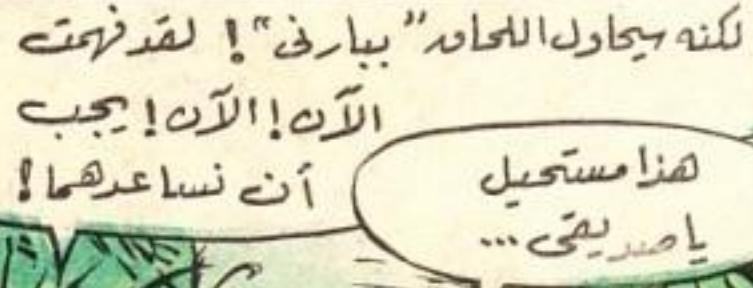 لكنه سيحاول اللحاق "ببارنى"! لقد فهمت
الآن! الآن! يجب
أن نساعدهما!
هذا مستحيل
يا صديقى...